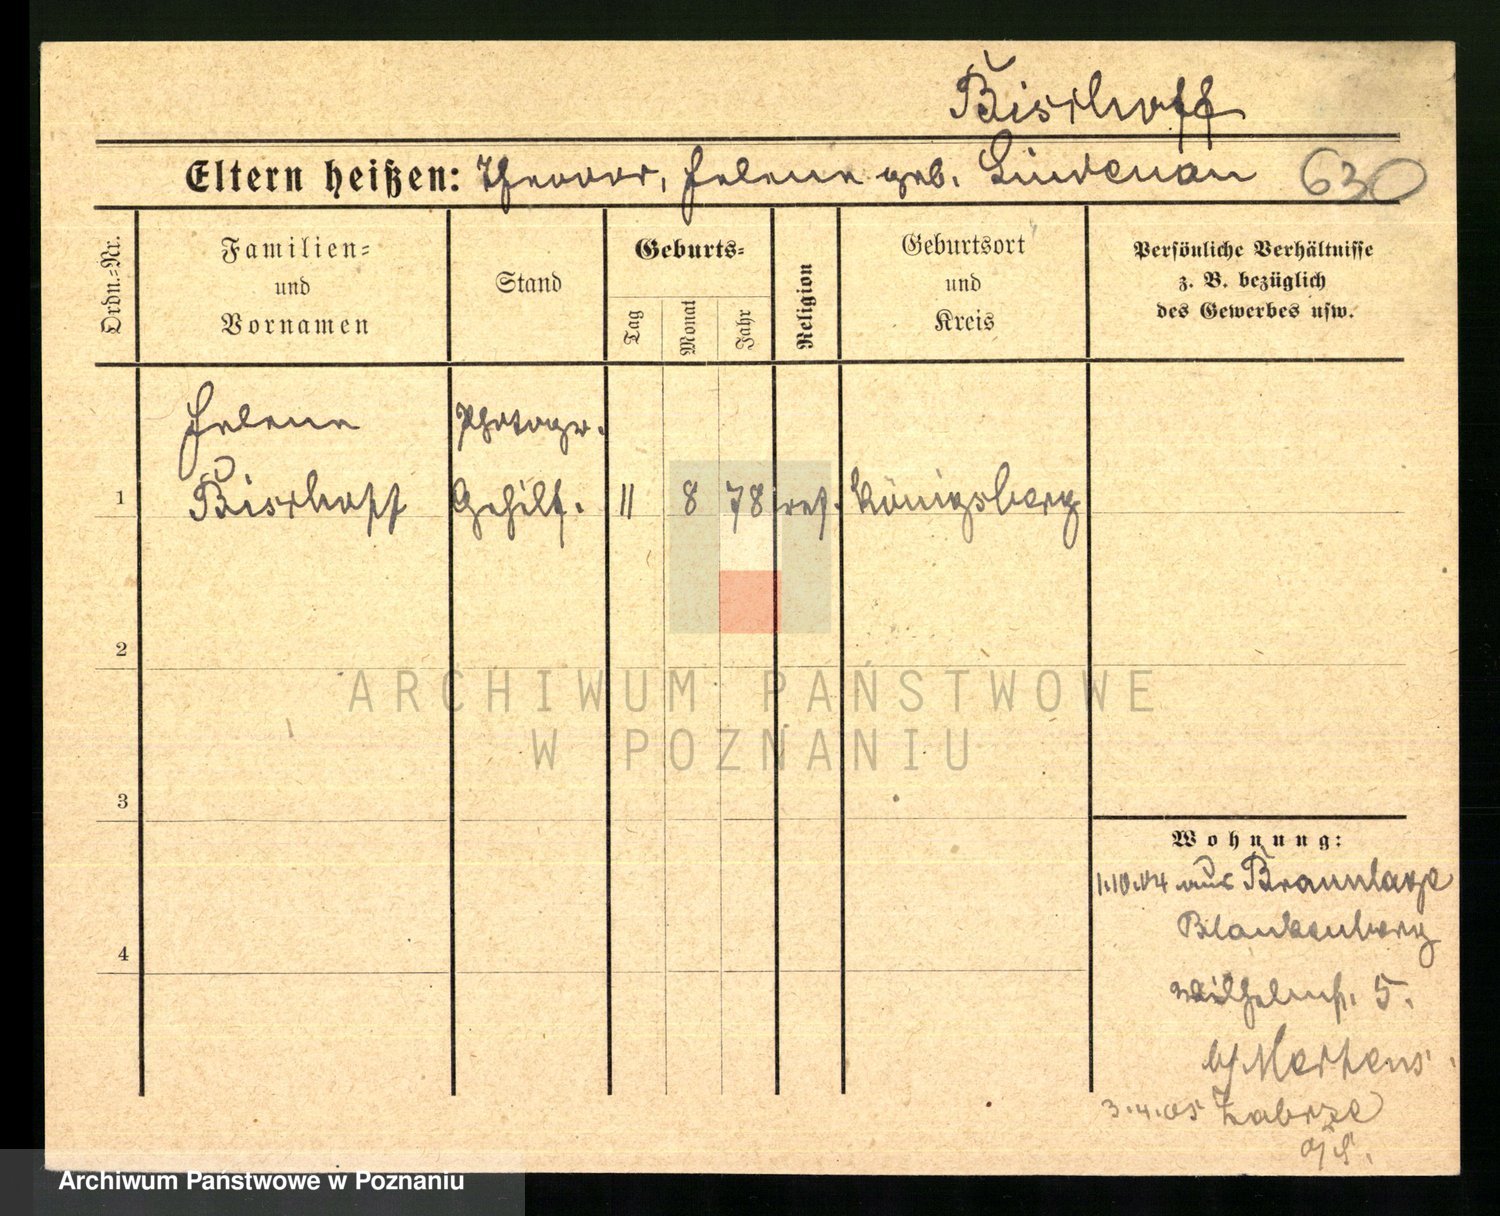 Bischoff
Eltern heißen: Theodor, Helene geb. Lindenau 630
Ordn.=Nr.
Familien=
und
Vornamen
Stand
Geburts=
Tag
Monat
Jahr
Religion
Geburtsort
und
Kreis
Persönliche Verhältnisse
z. B. bezüglich
des Gewerbes usw.
Helene Photogr.
1 Bischoff Gehilf. 11 8 78 ref. Königsberg
2
ARCHIWUM PAŃSTWOWE
W POZNANIU
3
Wohnung:
1.10.04 aus Braunlage
Blankenberg
4
Wilhelmst. 5.
b/ Mertens
3.4.05 Zabrze
O/S.
Archiwum Państwowe w Poznaniu